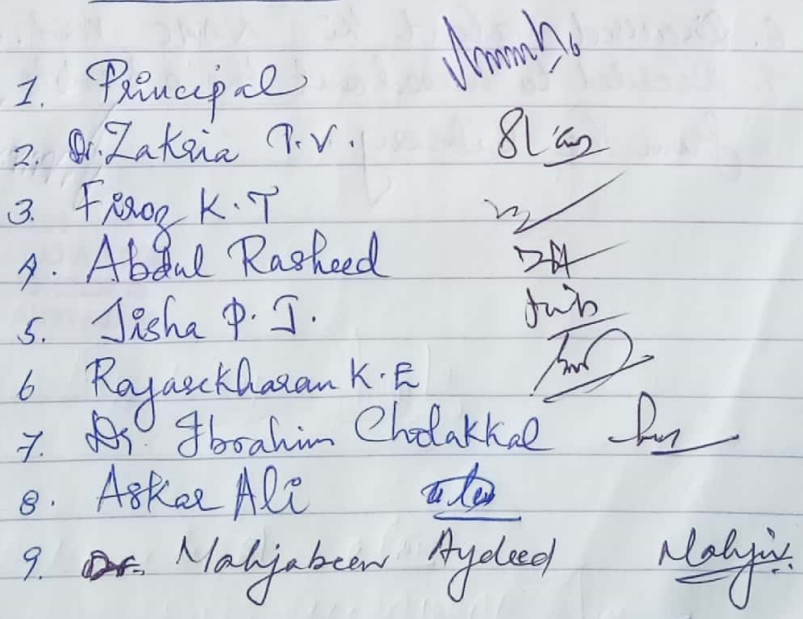 1. Principal
2. Dr. Zakria P.V.
3. Firoz K.T
4. Abdul Rasheed
5. Jisha P.J.
6 Rajasekharan K.E
7. Dr. Ibrahim Cholakkal
8. Askar Ali
9. Dr. Mahjabeen Aydeed